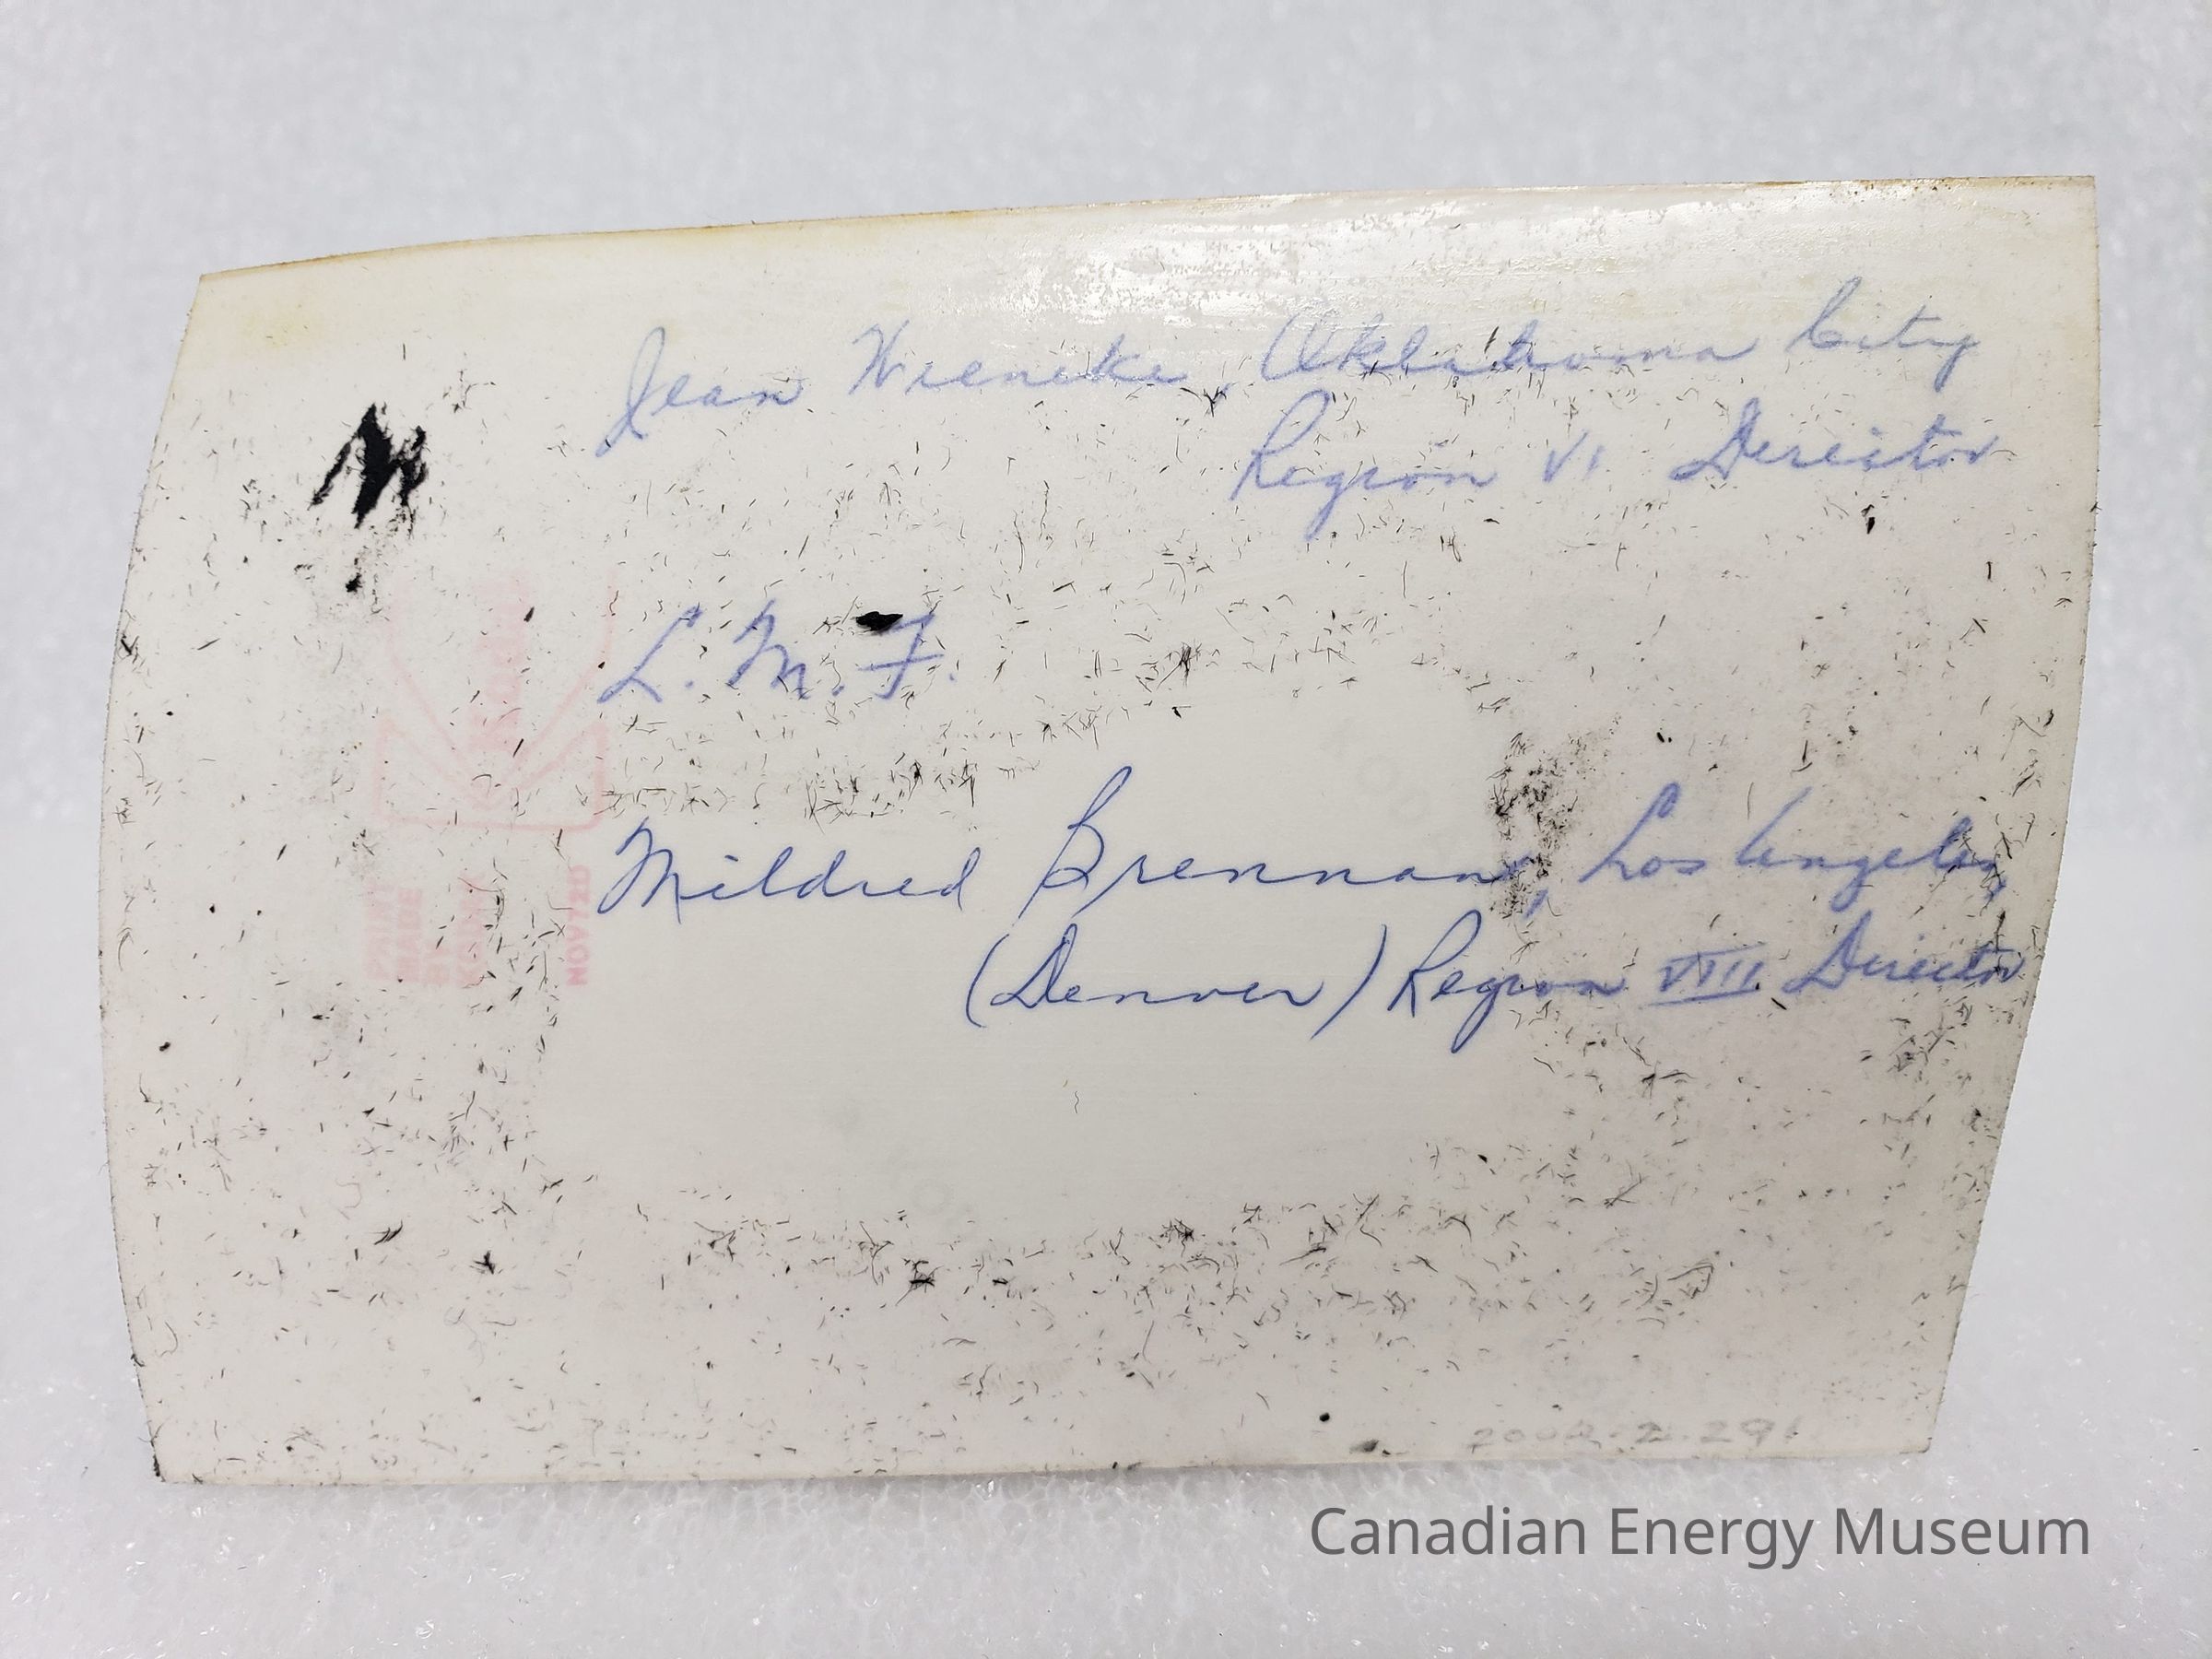 Jean Wieneke, Oklahoma City
Region VI Director
L. M. F.
Mildred Brennan, Los Angeles,
(Denver) Region VIII Director
MADE
BY
KODAK
NOV 
Canadian Energy Museum